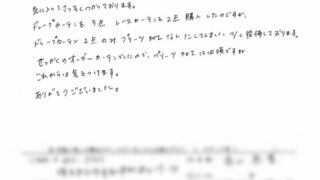 気に入ってさっそくつかっております。
ドレープカーテンを5点 レースカーテンを2点 購入したのですが、
ドレープカーテン2点のみ プリーツ加工なしにしてしまい 少し後悔しております。
せっかくのオーダーカーテンでしたので、プリーツ加工は必須ですね
これからは気をつけます。
ありがとうございました。